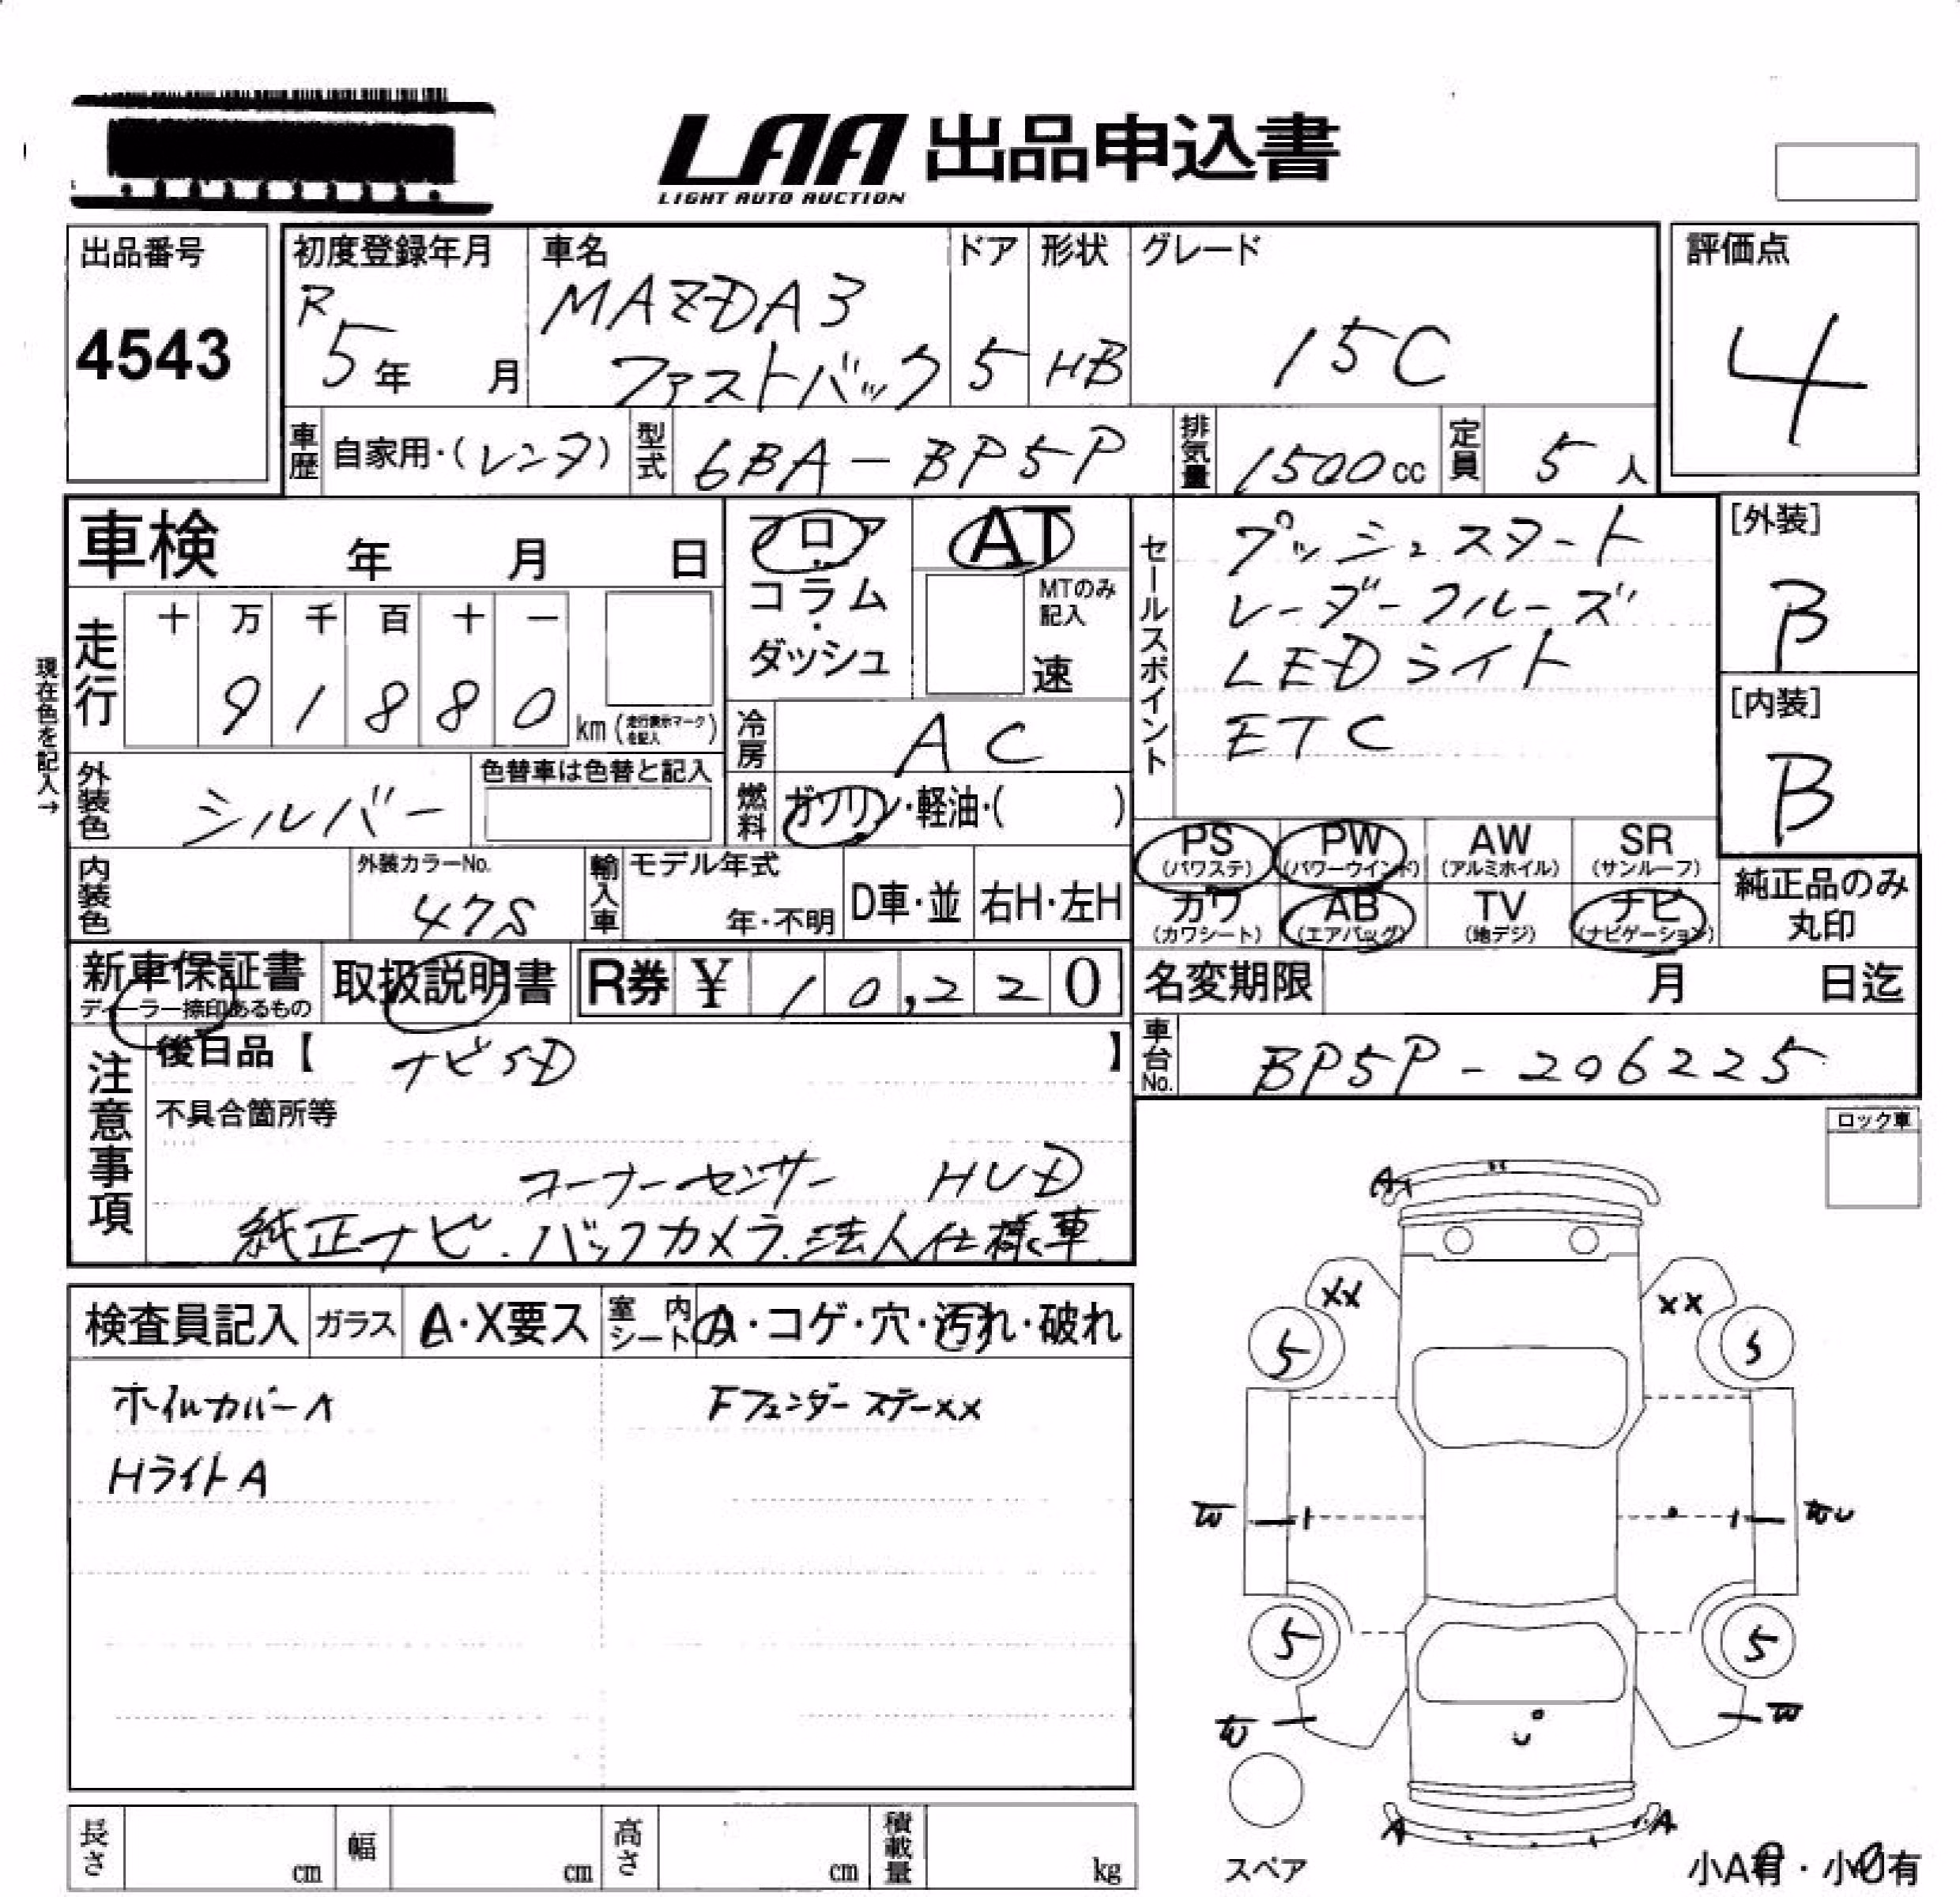 LAA 出品申込書
LIGHT AUTO AUCTION
出品番号
4543
初度登録年月
R
5年 月
車名
MAZDA3
ファストバック
ドア
5
形状
HB
グレード
15C
評価点
4
車歴 自家用・(レンタ)
型式 6BA-BP5P
排気量 1500cc
定員 5人
車検 年 月 日
フロア・コラム・ダッシュ
AT
MTのみ記入
速
セールスポイント
プッシュスタート
レーダークルーズ
LEDライト
ETC
[外装]
B
[内装]
B
現在色を記入→
走行
十 万 千 百 十 一
9 1 8 8 0 km (走行表示マークを記入)
冷房 AC
燃料 ガソリン・軽油・( )
外装色 シルバー
色替車は色替と記入
内装色
外装カラーNo.
47S
輸入車 モデル年式
年・不明
D車・並
右H・左H
PS (パワステ)
PW (パワーウインド)
AW (アルミホイル)
SR (サンルーフ)
カワ (カワシート)
AB (エアバッグ)
TV (地デジ)
ナビ (ナビゲーション)
純正品のみ丸印
新車保証書
ディーラー捺印あるもの
取扱説明書
R券 ¥ 10,220
名変期限 月 日迄
車台No. BP5P-206225
注意事項
後日品【 ナビSD 】
不具合箇所等
コーナーセンサー HUD
純正ナビ.バックカメラ.法人仕様車
ロック車
検査員記入
ガラス A・X要ス
室内シート A・コゲ・穴・汚れ・破れ
ホイルカバーA
HライトA
FフェンダーステーXX
A1
XX
XX
5
5
W
WU
5
5
W
W
U
A
A
スペア
小A有・小U有
長さ cm
幅 cm
高さ cm
積載量 kg